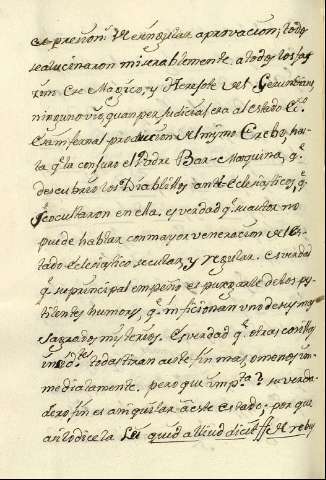 expresion: de singular aprovacion; todos
se alucinaron miserablemente a todos los
ese Magico, y Herefote del Gerundiano,
ninguno vio, quan perjudicial era al estado Ec.co
Esa infernal produccion del mismo Erebo, has-
ta q.e la conjuro el Padre Bar-Moquina, q.e
descubrio los Diablillos anti-Eclesiasticos, q.e
se ocultaron en ella. es verdad q.e su autor no
puede hablar con mayor veneracion del Es-
tado Eclesiastico secular, y regular. Es verdad
q.e su principal empeño es purgarle de los pes-
tilentes humores, q.e inficionan uno de sus mas
sagrados mysterios. Es verdad q.e otras cosillas
todas tiran a este fin mas, o menos in-
mediatamente. pero que imp.ta? su verda-
dero fin es aniquilar a este estado; por que
asi lo dice la Lei quid aliud dicit ff. de rebus